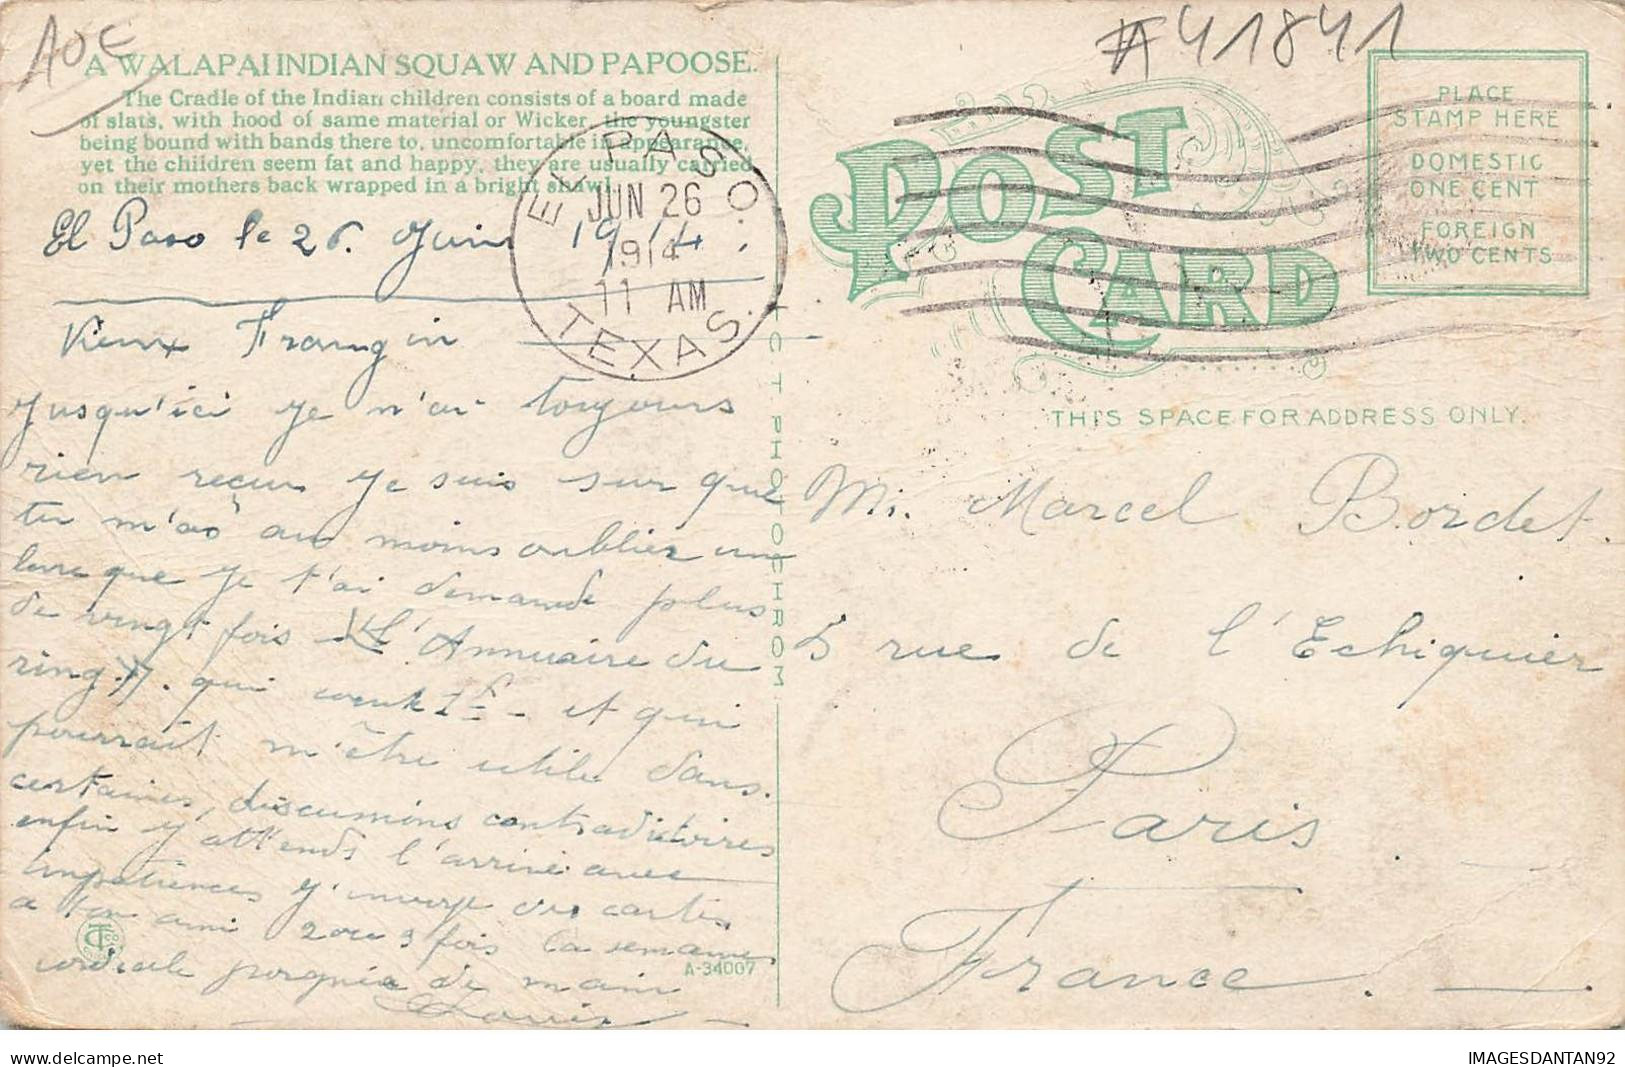 AOC
#41841
A WALAPAI INDIAN SQUAW AND PAPOOSE.
The Cradle of the Indian children consists of a board made
of slats, with hood of same material or Wicker, the youngster
being bound with bands there to, uncomfortable in appearance,
yet the children seem fat and happy, they are usually carried
on their mothers back wrapped in a bright shawl.
EL PASO
JUN 26
1914
11 AM
TEXAS.
POST CARD
PLACE
STAMP HERE
DOMESTIC
ONE CENT
FOREIGN
TWO CENTS
THIS SPACE FOR ADDRESS ONLY.
El Paso le 26. Juin 1914.
Vieux Frangin
Jusqu'ici je n'ai toujours
rien reçu je suis sur que
tu m'as au moins oublier un
livre que je t'ai demande plus
de vingt fois l'Annuaire du
ring. qui coute 1f - et qui
pourrait m'être utile dans
certaines, discussions contradictoires
enfin j'attends l'arrivé avec
impatiences j'envoye des cartes
a ton ami 2 ou 3 fois la semaine
cordiale poignée de main
Louis
C T PHOTOCHROM
CT CO
A-34007
M. Marcel Bordet.
5 rue de l'Echiquier
Paris.
France.
delcampe.net
IMAGESDANTAN92